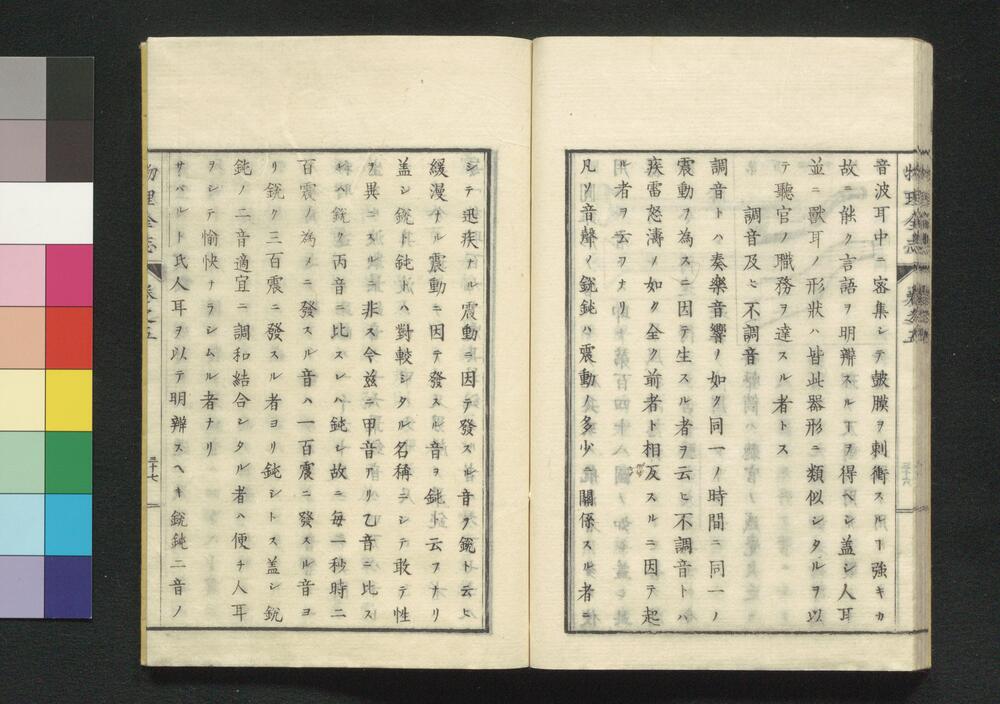 音波耳中ニ容集シテ鼓膜ヲ刺衝スルヿ強キカ
故ニ能ク言語ヲ明辨スルヿヲ得ヘシ盖シ人耳
並ニ獸耳ノ形狀ハ皆此器形ニ類似シタルヲ以
テ聽官ノ職務ヲ達スル者トス
調音及ヒ不調音
調音トハ奏樂音響ノ如ク同一ノ時間ニ同一ノ
震動ヲ為スニ因テ生スル者ヲ云ヒ不調音トハ
疾雷怒濤ノ如ク全ク前者ト相反スルニ因テ起
ル者ヲ云フナリ
凡ソ音聲ノ銳鈍ハ震動ノ多少ニ關係スル者ニ
シテ迅疾ナル震動ニ因テ發スル音ヲ銳ト云ヒ
緩漫ナル震動ニ因テ發スル音ヲ鈍ト云フナリ
盖シ銳ト鈍トハ對較シタル名稱ニシテ敢テ性
ヲ異ニスルニ非ス今兹ニ甲音アリ乙音ニ比ス
レハ銳ク丙音ニ比スレハ鈍シ故ニ每一秒時ニ
百震ノ為メニ發スル音ハ一百震ニ發スル音ヨ
リ銳ク三百震ニ發スル者ヨリ鈍シトス盖シ銳
鈍ノ二音適宜ニ調和結合シタル者ハ便チ人耳
ヲシテ愉快ナラシムル者ナリ
サハルト氏人耳ヲ以テ明辨スヘキ銳鈍二音ノ
物理全志
卷之五
三十七